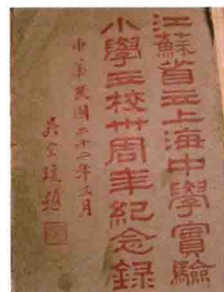 江蘇省立上海中學實驗
小學立校卅周年紀念錄
中華民國二十二年月